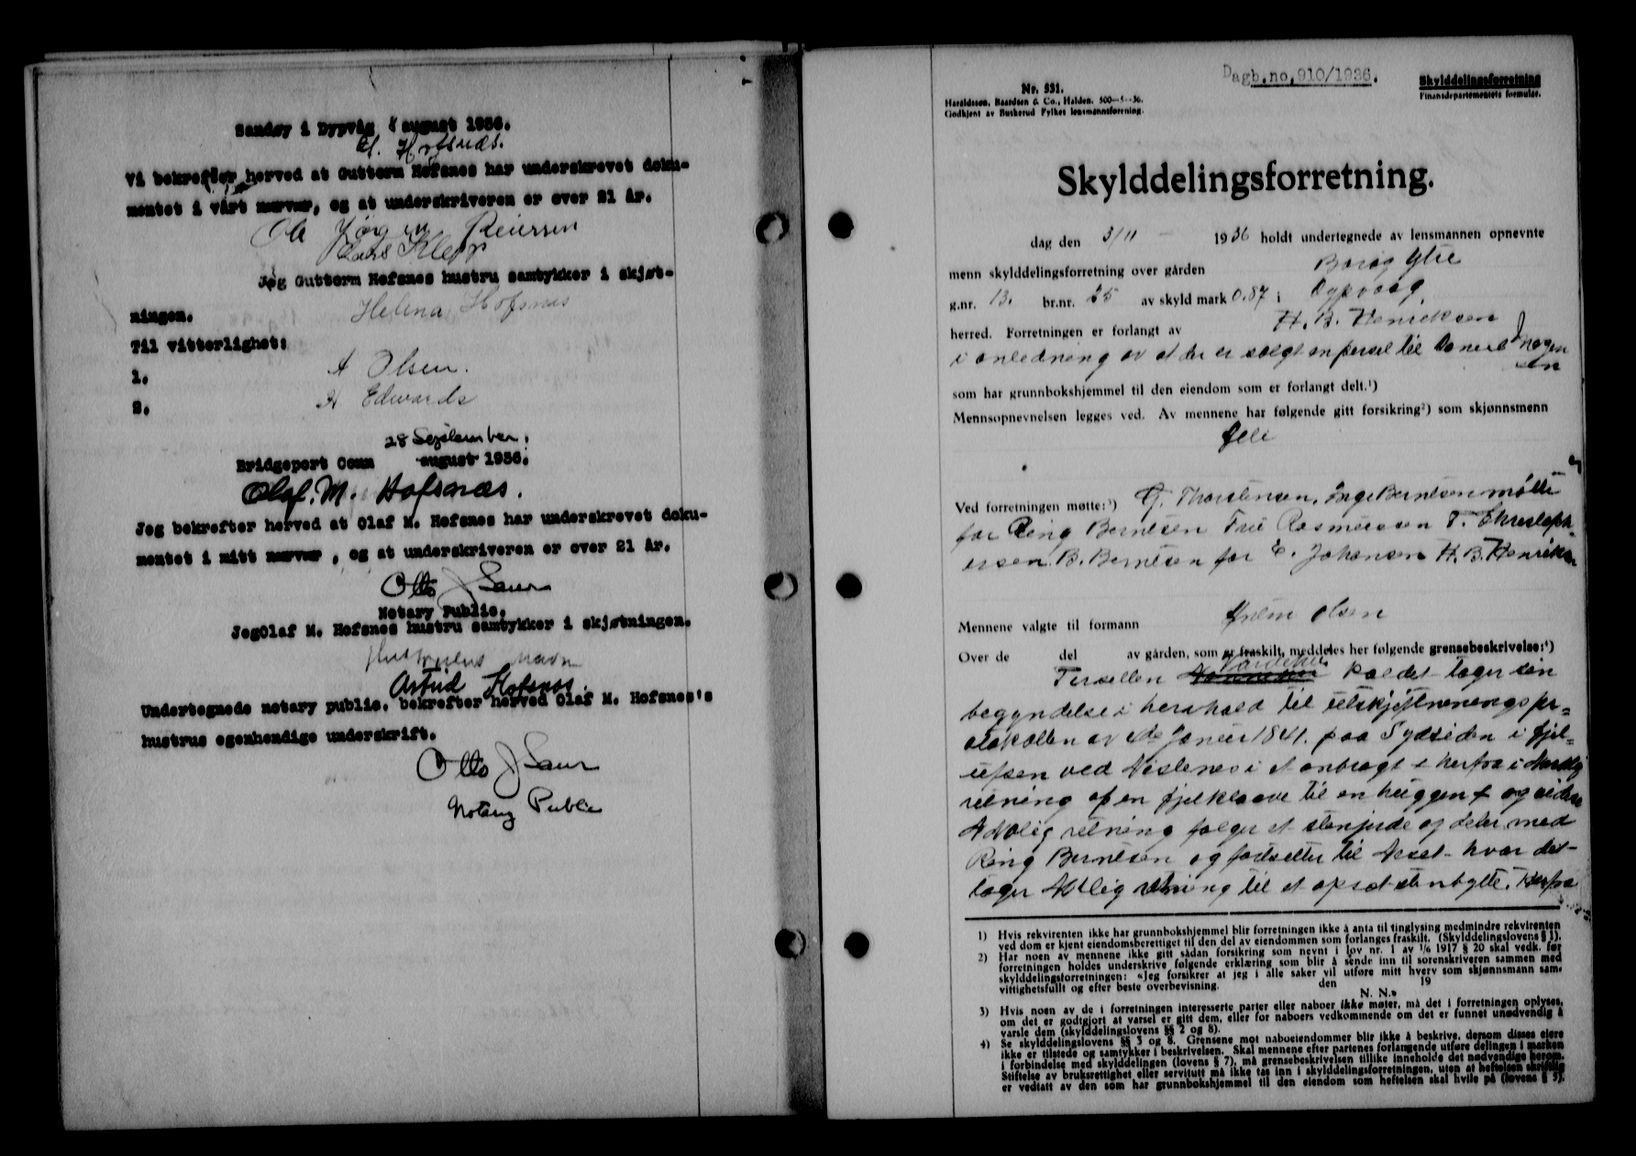 Sandøy i Dypvåg 8 august 1936.
G. Hofsnæs.
Vi bekrefter herved at Guttorm Hofsnes har underskrevet doku-
mentet i vårt nærvær, og at underskriveren er over 21 år.
Reiersen
Jeg Guttorm Hofsnes hustru samtykker i skjøt-
ningen.
Helena Hofsnæs
Til vitterlighet:
1. A Olsen.
2. A Edwards
28 September.
Bridgeport Conn august 1936.
Olaf. M. Hofsnæs.
Jeg bekrefter herved at Olaf M. Hofsnes har underskrevet doku-
mentet i mitt nærvær , og at underskriveren er over 21 år.
Otto J Saur
Notary Public.
JegOlaf M. Hofsnes hustru samtykker i skjøtningen.
Hustruens navn
Astrid Hofsnæs.
Undertegnede notary public. bekrefter herved Olaf M. Hofsnes's
hustrus egenhendige underskrift.
Otto J Saur
Notary Public
Dagb.no.910/1936.
Skylddelingsforretning
Finansdepartementets formular.
Nr. 531.
Haraldssen, Baardsen & Co., Halden. 500—5—36.
Godkjent av Buskerud Fylkes lensmannsforening.
Skylddelingsforretning.
dag den 3/11 1936 holdt undertegnede av lensmannen opnevnte
menn skylddelingsforretning over gården Borøy Ytre
g.nr. 13. br.nr. 25 av skyld mark 0.87 i Dypvaag.
herred. Forretningen er forlangt av H. B. Henriksen
i anledning av at der er solgt en parsel til
som har grunnbokshjemmel til den eiendom som er forlangt delt.¹)
Mennsopnevnelsen legges ved. Av mennene har følgende gitt forsikring²) som skjønnsmenn
Ved forretningen møtte:³) Thorstensen, Inge Berntsen møtte
for Ring Berntsen Fru Rasmussen T. Christoph
ersen B. Berntsen for E. Johansen H. B. Henriksen
Mennene valgte til formann Olsen
Over de del av gården, som er fraskilt, meddeles her følgende grensebeskrivelse:⁴)
Parsellen kaldet tager sin
begyndelse i henhold til utskiftningspr=
otokollen av Januer 1841. paa Sydsiden i fjel=
ufsen ved i et anbragt + herfra i Nordlig
retning af en fjelkløve til en huggen + og videre
retning følger et stengjerde og deler med
Ring Berntsen og fortsetter til hvor det
tager retning til et opsat stenbytte. Herfra
1) Hvis rekvirenten ikke har grunnbokshjemmel blir forretningen ikke å anta til tinglysing medmindre rekvirenten
ved dom er kjent eiendomsberettiget til den del av eiendommen som forlanges fraskilt. (Skylddelingslovens § 1).
2) Har noen av mennene ikke gitt sådan forsikring som nevnt i lov nr. 1 av 1/6 1917 § 20 skal vedk. før
forretningen holdes underskrive følgende erklæring som blir å sende inn til sorenskriveren sammen med
skylddelingsforretningen: «Jeg forsikrer at jeg i alle saker vil utføre mitt hverv som skjønnsmann sam-
vittighetsfullt og efter beste overbevisning. den 19
N. N.»
3) Hvis noen av de i forretningen interesserte parter eller naboer ikke møter, må det i forretningen oplyses,
om det er godtgjort at varsel er gitt dem, eller for naboers vedkommende om det er funnet unødvendig å
varsle dem (skylddelingslovens §§ 2 og 8).
4) Se skylddelingslovens §§ 3 og 8. Grensene mot naboeiendommer blir ikke å beskrive, dersom disses eiere
ikke er tilstede og samtykker i beskrivelsen. Skal mennene efter partenes forlangende utføre delingen i marken
i forbindelse med skylddelingen (lovens § 7), må grensebeskrivelsen tillike inneholde det nødvendige herom.
Stiftelse av bruksrettighet eller servitutt må ikke tas inn i skylddelingsforretningen, uten at heftelsen skriftlig
er vedtatt av den som har grunnbokshjemmel til den eiendom som heftelsen skal hvile på (lovens § 5).